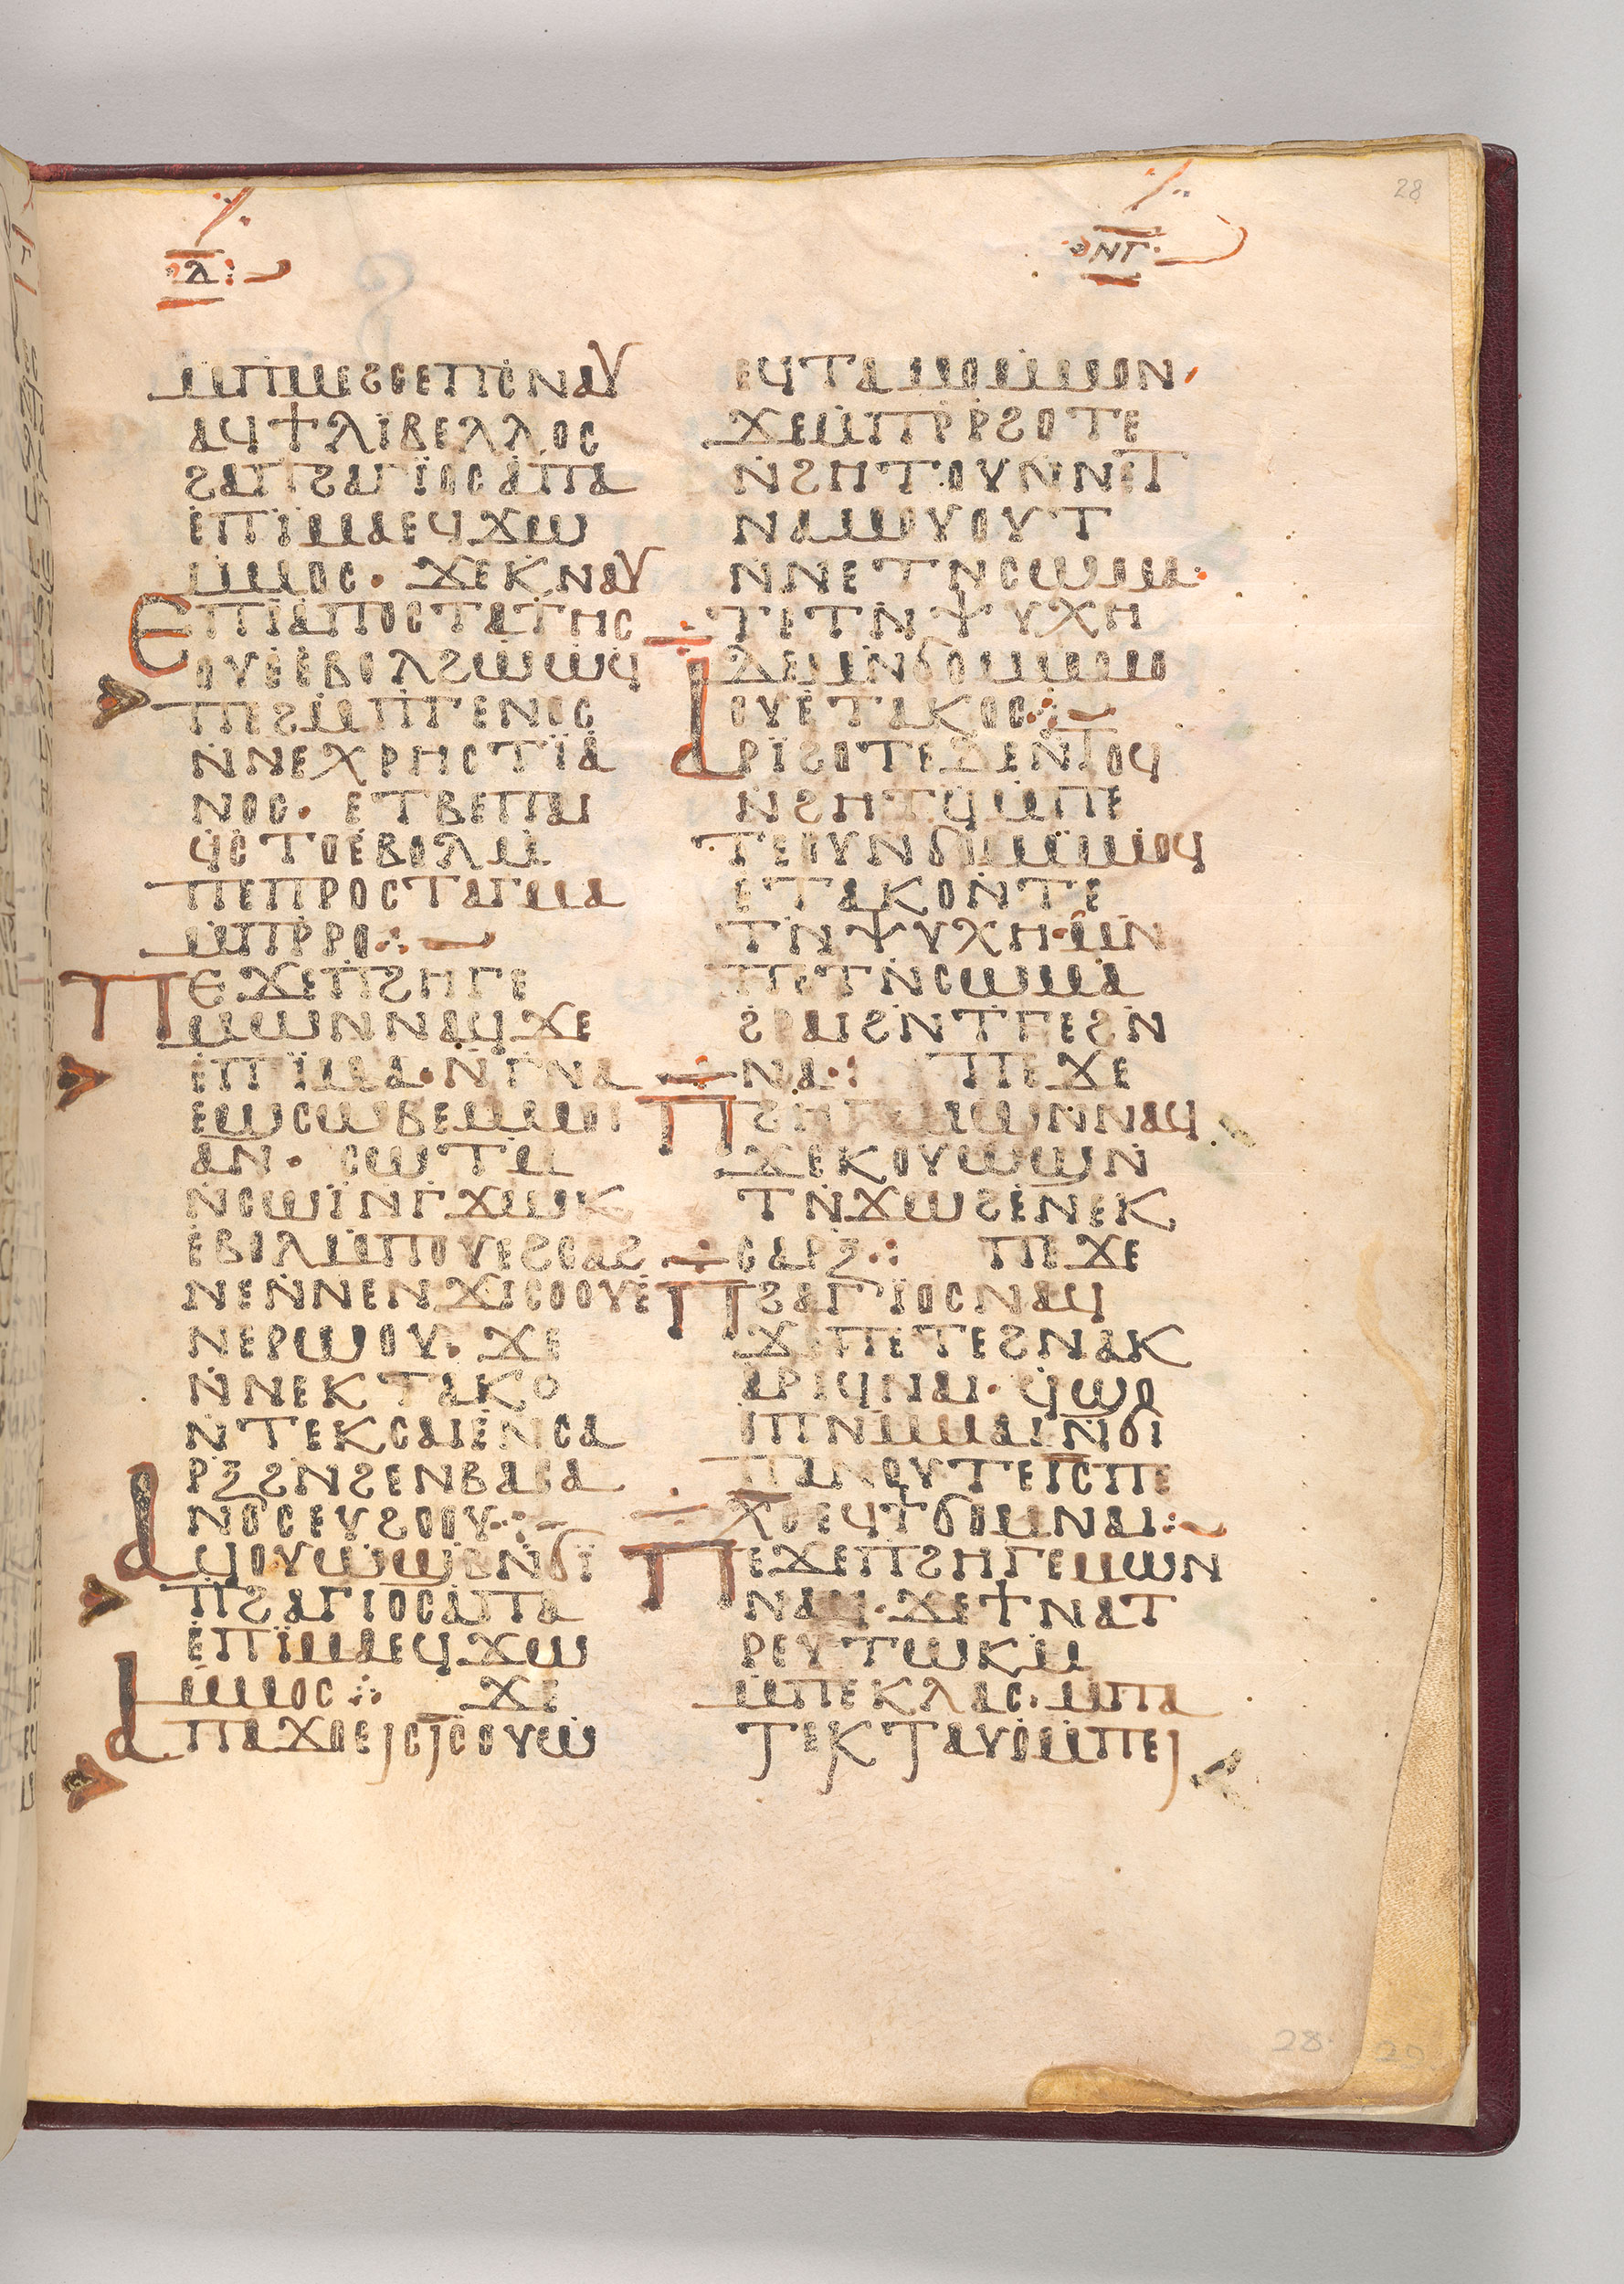 28
ⲇ
ⲛⲅ
ⲙⲡⲙⲉϩⲥⲉⲡⲥⲛⲁⲩ
ⲁϥϯⲗⲓⲃⲉⲗⲗⲟⲥ
ϩⲁⲡϩⲁⲅⲓⲟⲥⲁⲡⲁ
ⲉⲡⲓⲙⲁⲉϥϫⲱ
ⲙⲙⲟⲥ· ϫⲉⲕⲛⲁⲩ
ⲉⲡⲓⲁⲡⲟⲥⲧⲁⲧⲏⲥ
ⲟⲩⲉⲉⲃⲟⲗϩⲱⲱϥ
ⲡⲉϩⲙⲡⲅⲉⲛⲟⲥ
ⲛⲛⲉⲭⲣⲏⲥⲧⲓⲁ
ⲛⲟⲥ· ⲉⲧⲃⲉⲡⲁⲓ
ϥⲥⲧⲟⲉⲃⲟⲗⲙ
ⲡⲉⲡⲣⲟⲥⲧⲁⲅⲙⲁ
ⲙⲡⲣⲣⲟ⁘
ⲡⲉϫⲉⲡϩⲏⲅⲉ
ⲙⲱⲛⲛⲁϥϫⲉ
ⲉⲡⲓⲙⲁ·ⲛⲅⲛⲁ
ⲉϣⲥⲱⲃⲉⲙⲙⲟⲓ
ⲁⲛ· ⲥⲱⲧⲙ
ⲛⲥⲱⲓⲛⲅϫⲱⲕ
ⲉⲃⲟⲗⲙⲡⲟⲩⲉϩⲥⲁϩ
ⲛⲉⲛⲛⲉⲛϫⲓⲥⲟⲟⲩⲉ
ⲛⲉⲣⲱⲟⲩ· ϫⲉ
ⲛⲛⲉⲕⲧⲁⲕⲟ
ⲛⲧⲉⲕⲥⲁⲓⲉⲛⲥⲁ
ⲣⲝϩⲛϩⲉⲛⲃⲁⲥⲁ
ⲛⲟⲥⲉⲩϩⲟⲟⲩ⁘
ⲁϥⲟⲩⲱϣⲃⲛϭⲓ
ⲡϩⲁⲅⲓⲟⲥⲁⲡⲁ
ⲉⲡⲓⲙⲁⲉϥϫⲱ
ⲙⲙⲟⲥ⁘ ϫⲉ
ⲁⲡⲁϫⲟⲉⲓⲥⲓⲥⲟⲩⲱ
ⲉϥⲧⲁⲙⲟⲙⲙⲟⲛ·
ϫⲉⲙⲡⲣⲣϩⲟⲧⲉ
ⲛϩⲏⲧⲟⲩⲛⲛⲉⲧ
ⲛⲁⲙⲟⲩⲟⲩⲧ
ⲛⲛⲉⲧⲛⲥⲱⲙⲁ·
ⲧⲉⲧⲛⲯⲩⲭⲏ
ⲇⲉⲙⲛϭⲟⲙⲙⲙⲟ
ⲟⲩⲉⲧⲁⲕⲟⲥ⁘
ⲁⲣⲓϩⲟⲧⲉⲇⲉⲛⲧⲟϥ
ⲛϩⲏⲧϥⲙⲡⲉ
ⲧⲉⲟⲩⲛϭⲟⲙⲙⲙⲟϥ
ⲉⲧⲁⲕⲟⲛⲧⲉ
ⲧⲛⲯⲩⲭⲏ·ⲙⲛ
ⲡⲉⲧⲛⲥⲱⲙⲁ
ϩⲣⲁⲓϩⲛⲧⲅⲉϩⲛ
ⲛⲁ⁚ ⲡⲉϫⲉ
ⲡϩⲏⲅⲉⲙⲱⲛⲛⲁϥ
ϫⲉⲕⲟⲩⲱϣⲛ
ⲧⲛϫⲱϩⲉⲛⲉⲕ
ⲥⲁⲣⲝ⁘ ⲡⲉϫⲉ
ⲡϩⲁⲅⲓⲟⲥⲛⲁϥ
ϫⲉⲡⲉⲧⲉϩⲛⲁⲕ
ⲁⲣⲓϥⲛⲁⲓ·ϥϣⲟ
ⲟⲡⲛⲙⲙⲁⲓⲛϭⲓ
ⲡⲁⲛⲟⲩⲧⲉⲓⲥⲡⲉ
ⲭⲥⲉϥϯϭⲟⲙⲛⲁⲓ⁘
ⲡⲉϫⲉⲡϩⲏⲅⲉⲙⲱⲛ
ⲛⲁϥ·ϫⲉϯⲛⲁⲧ
ⲣⲉⲩⲧⲱⲕⲙ
ⲙⲡⲉⲕⲗⲁⲥ·ⲙⲡⲁ
ⲧⲉⲕⲧⲁⲩⲟⲙⲡⲉⲓ
28
29